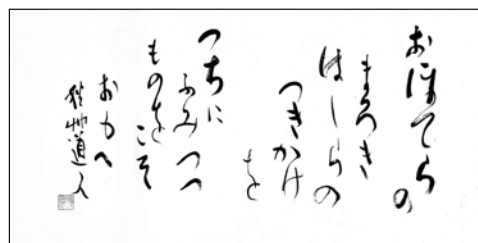 おほてらの
まろき
はしらの
つきかけ
を
つちに
ふみつつ
ものをこそ
おもへ
秋艸道人